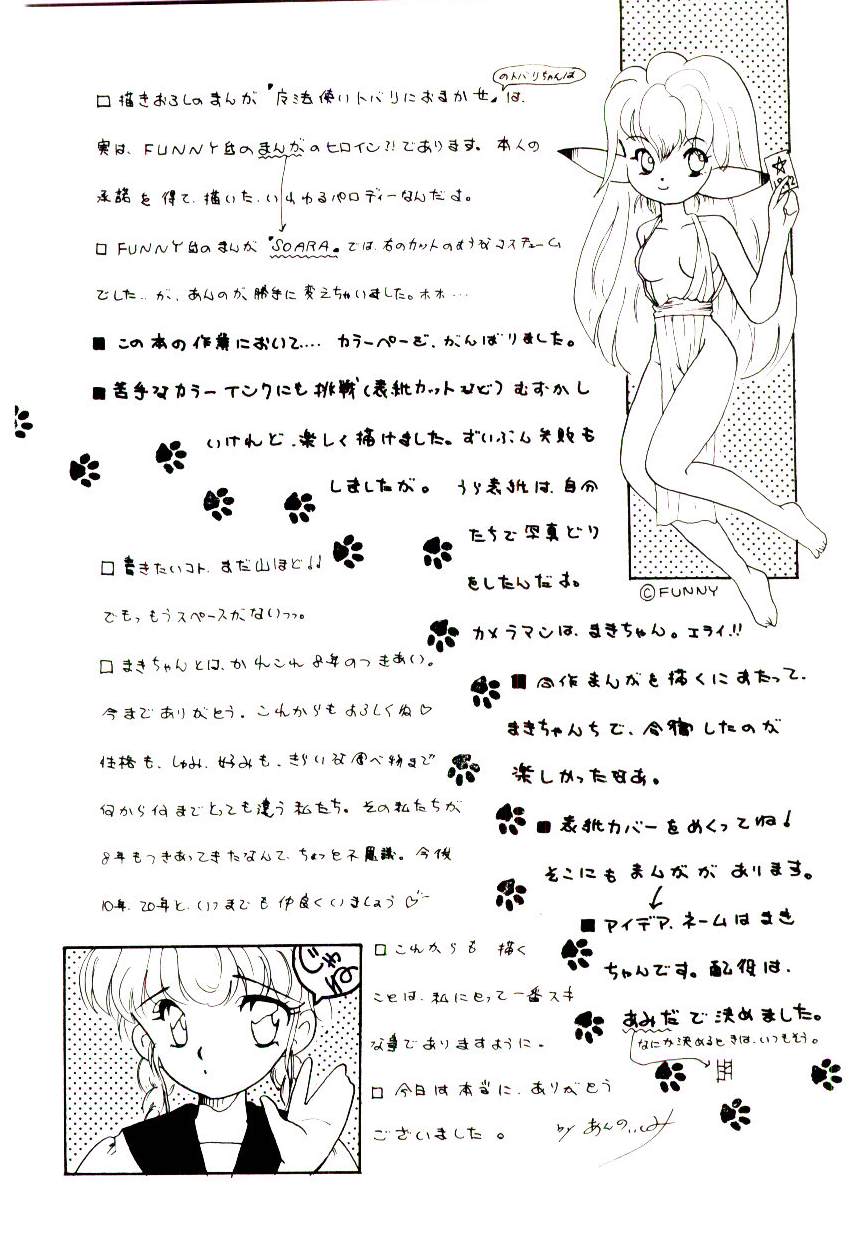 のトバリちゃんは
□描きおろしのまんが『魔法使いトバリにおまかせ』は、
実は、FUNNY缶のまんがのヒロイン?!であります。本人の
承諾を得て、描いた、いわゆるパロディーなんだよ。
□FUNNY缶のまんが『SOARA』では、右のカットのようなコスチューム
でした…が、あんのが、勝手に変えちゃいました。ホホ…
■この本の作業において…. カラーページを、がんばりました。
■苦手なカラーインクにも挑戦（表紙カットなど）むずかし
いけれど、楽しく描けました。ずいぶん失敗も
しましたが。 うら表紙は、自分
たちで写真どり
をしたんだよ。
カメラマンは、まきちゃん。エライ!!
■合作まんがを描くにあたって、
まきちゃんちで、合宿したのが
楽しかったなあ。
■表紙カバーをめくってね!
そこにもまんがが あります。
■アイデア、ネームはまき
ちゃんです。配役は、
あみだで決めました。
なにか決めるときは、いつもそう。
□書きたいコト、まだ山ほど!!
でもっもうスペースがないっっ。
□まきちゃんとは、かれこれ8年のつきあい。
今までありがとう。これからもよろしくね♡
性格も、しゅみ、好みも、きらいな食べ物まで
何から何までとっても違う私たち。その私たちが
8年もつきあってきたなんて、ちょっと不思議。今後
10年、20年と、いつまでも仲良くいましょう♡
□これからも 描く
ことは、私にとって一番スキ
な事でありますように。
□今日は本当に、ありがとう
ございました。 by あんの
じゃね
1992
©FUNNY